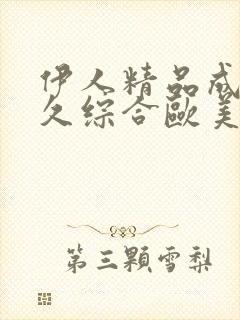 伊人精品成
久综合歐美
第三顆雪梨